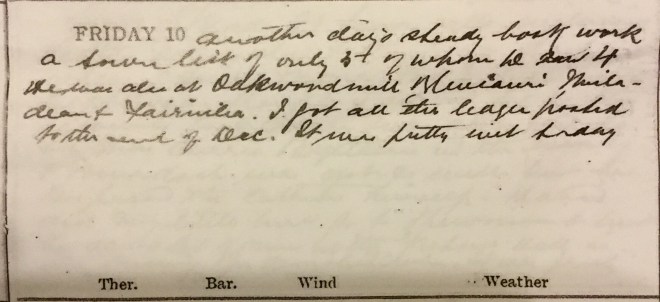 FRIDAY 10 another day's steady book work
a town list of only 5 of whom he saw 4
He was also at Oakwood mill
I got all the ledger posted
to the end of Dec. It was pretty wet today
Ther. Bar. Wind Weather